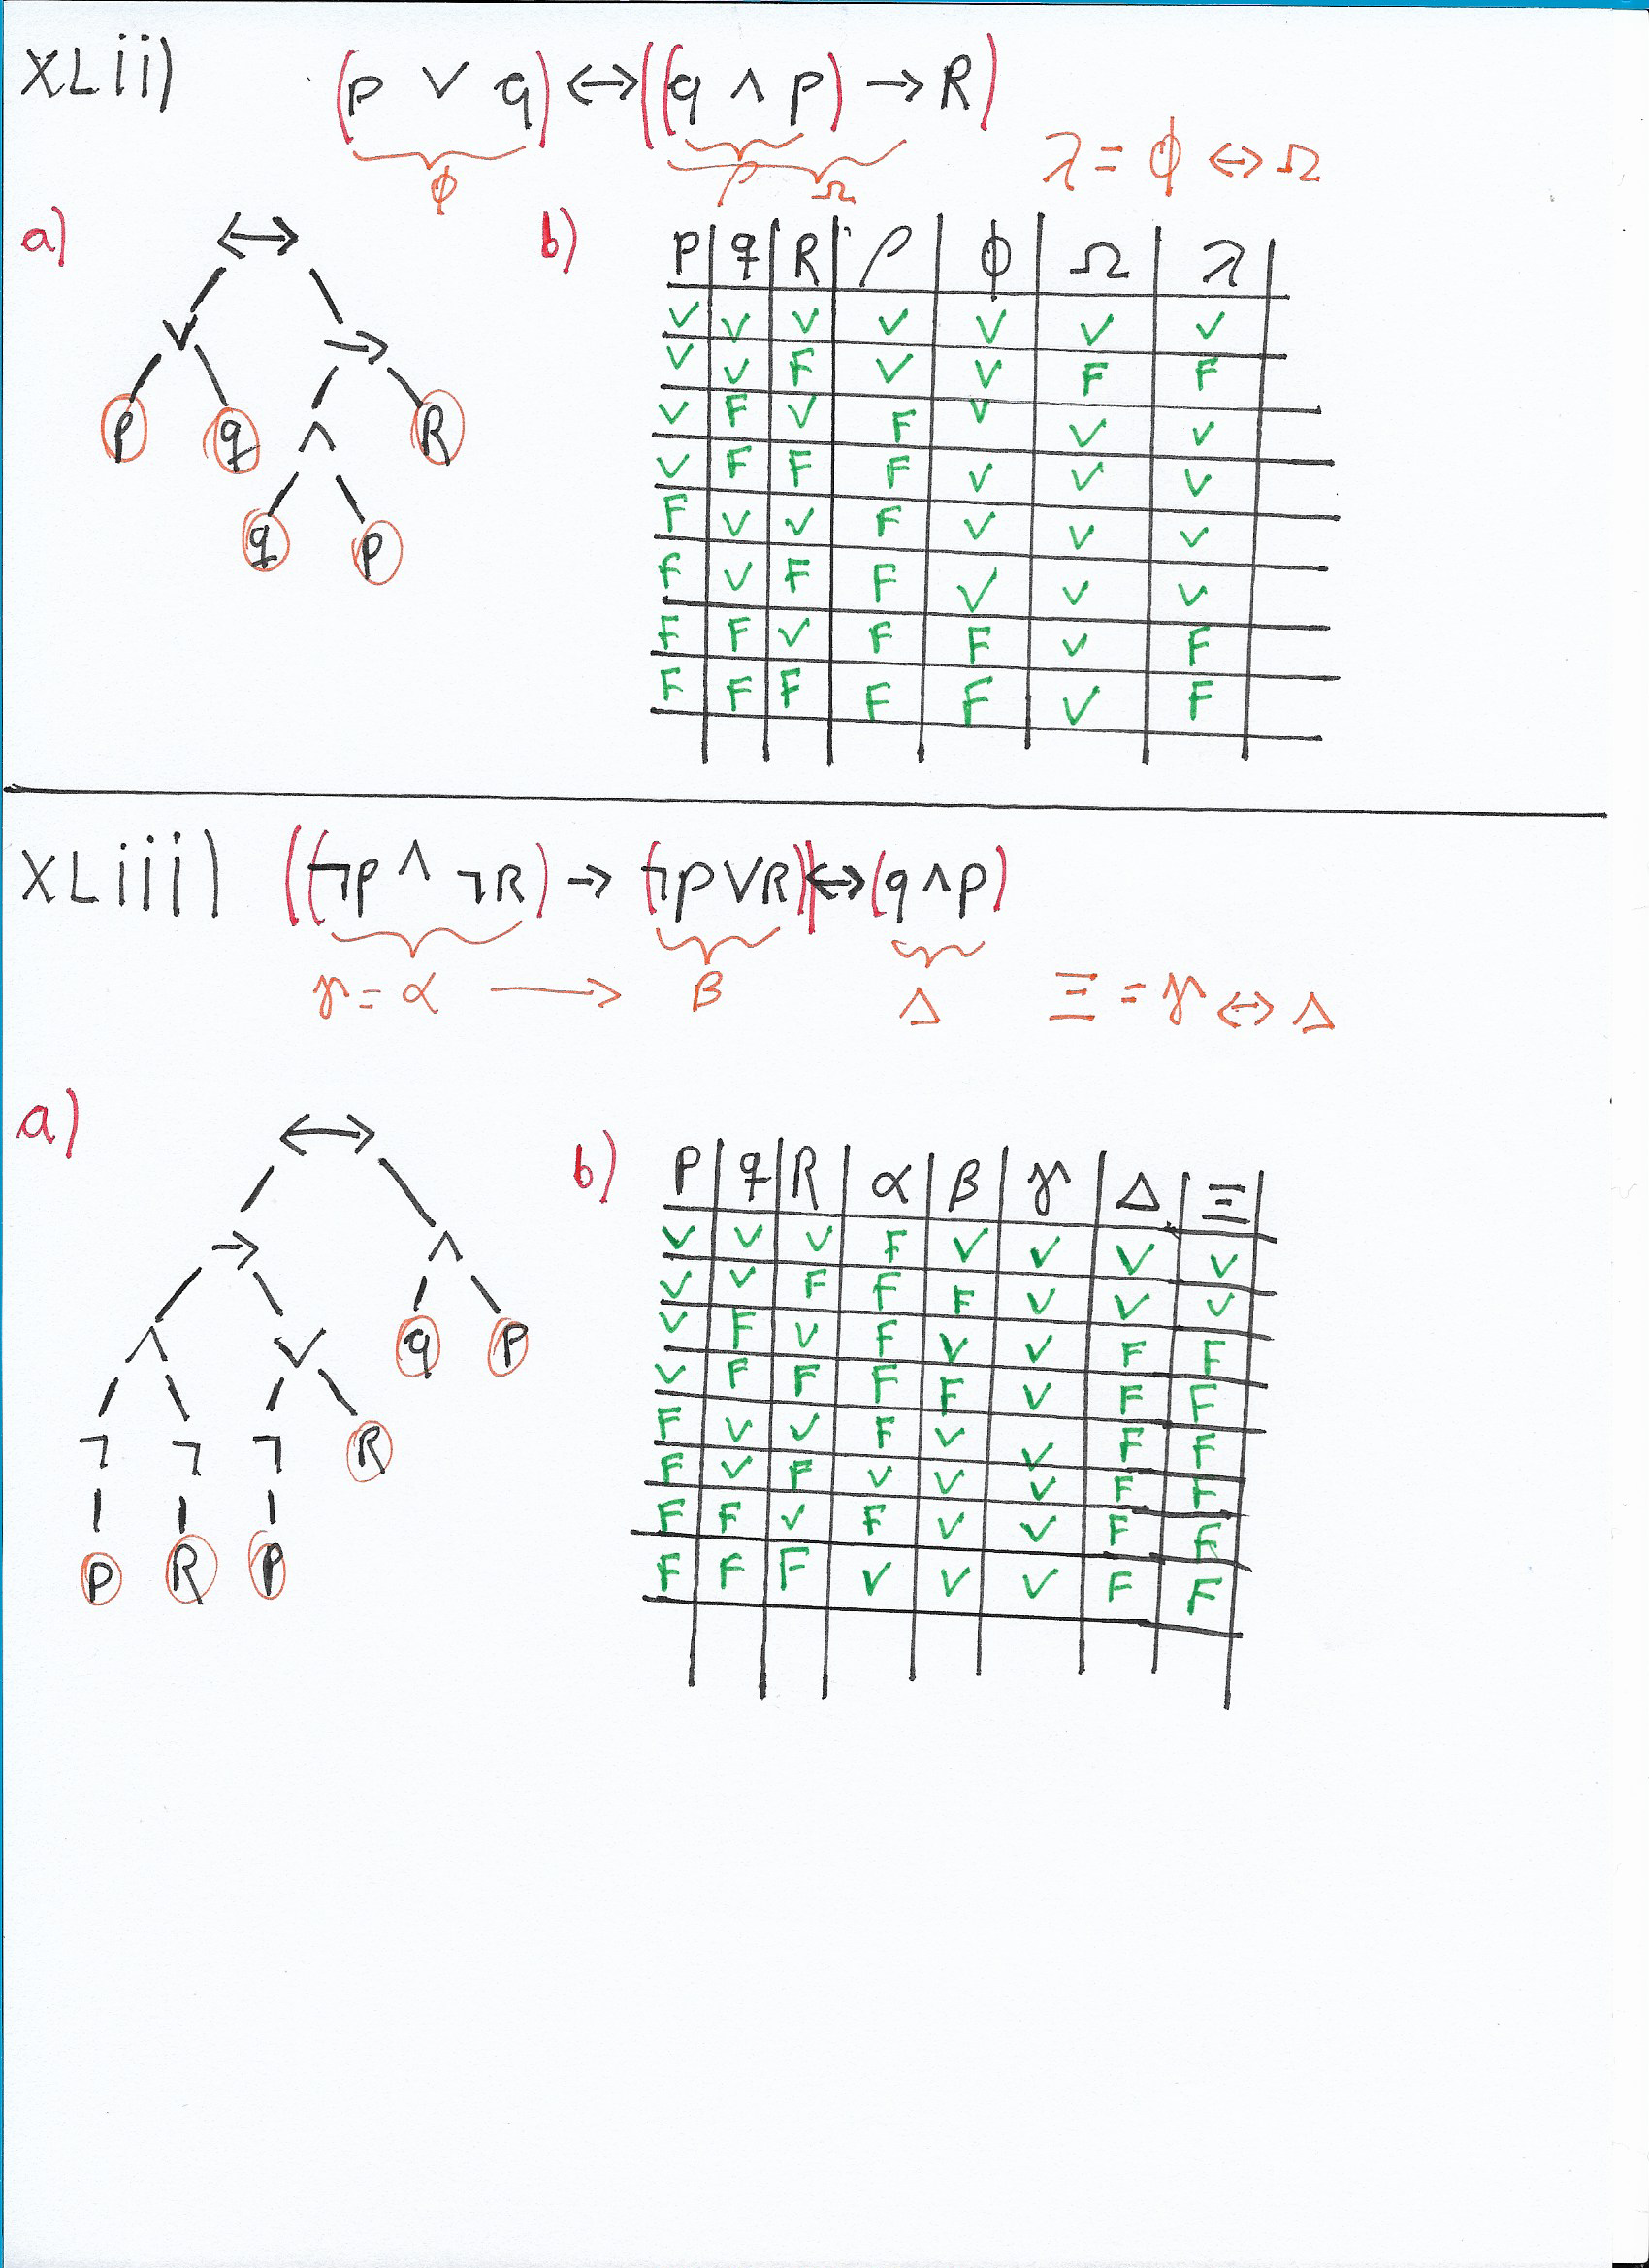 XLii) (p ∨ q) ↔ ((q ∧ p) → R)
ϕ ρ Ω λ = ϕ ↔ Ω
a) ↔
∨ →
p q ∧ R
q p
b) P q R ρ ϕ Ω λ
V V V V V V V
V V F V V F F
V F V F V V V
V F F F V V V
F V V F V V V
F V F F V V V
F F V F F V F
F F F F F V F
XLiii) ((¬p ∧ ¬R) → (¬p ∨ R)) ↔ (q ∧ p)
γ = α → β Δ Ξ = γ ↔ Δ
a) ↔
→ ∧
∧ ∨ q P
¬ ¬ ¬ R
P R P
b) P q R α β γ Δ Ξ
V V V F V V V V
V V F F F V V V
V F V F V V F F
V F F F F V F F
F V V F V V F F
F V F V V V F F
F F V F V V F F
F F F V V V F F